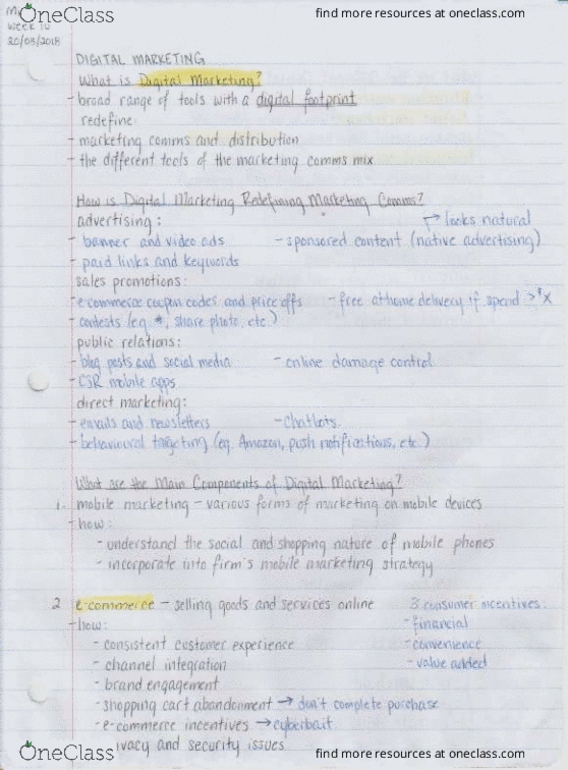 OneClass
find more resources at oneclass.com
week 10
20/03/2018
DIGITAL MARKETING
What is Digital Marketing?
- broad range of tools with a digital footprint
redefine:
- marketing comms and distribution
- the different tools of the marketing comms mix
How is Digital Marketing Redefining Marketing Comms?
advertising: → looks natural
- banner and video ads - sponsored content (native advertising)
- paid links and keywords
sales promotions:
- e-commerce coupon codes and price offs - free at home delivery if spend >$x
- contests (eg. #, share photo, etc.)
public relations:
- blog posts and social media - online damage control
- CSR mobile apps
direct marketing:
- emails and newsletters - chatbots
- behavioural targeting (eg. Amazon, push notifications, etc.)
What are the Main Components of Digital Marketing?
1. mobile marketing - various forms of marketing on mobile devices
- how:
- understand the social and shopping nature of mobile phones
- incorporate into firm's mobile marketing strategy
2 e-commerce - selling goods and services online 3 consumer incentives:
- how: - financial
- consistent customer experience - convenience
- channel integration - value added
- brand engagement
- shopping cart abandonment → don't complete purchase
- e-commerce incentives → cyberbait
ivacy and security issues
OneClass
find more resources at oneclass.com